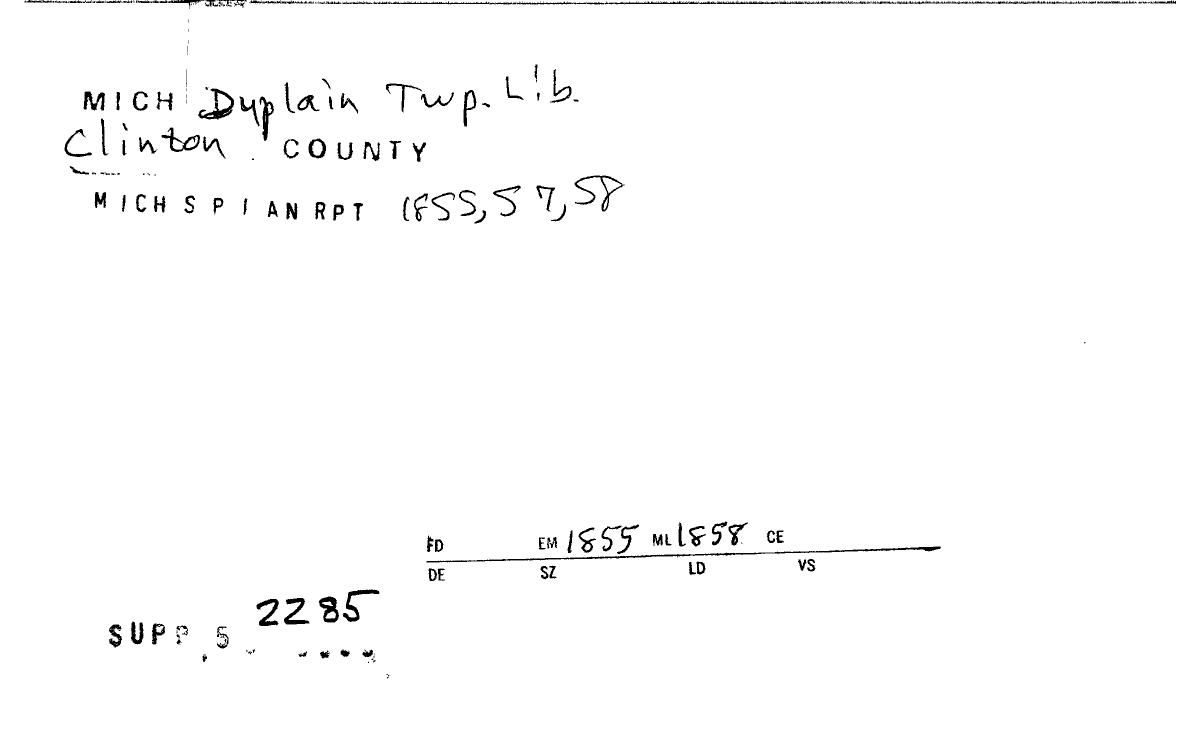 MICH Duplain Twp. Lib.
Clinton COUNTY
MICH S P I AN RPT 1855, 57, 58
FD EM 1855 ML 1858 CE
DE SZ LD VS
2285
SUPP. 5